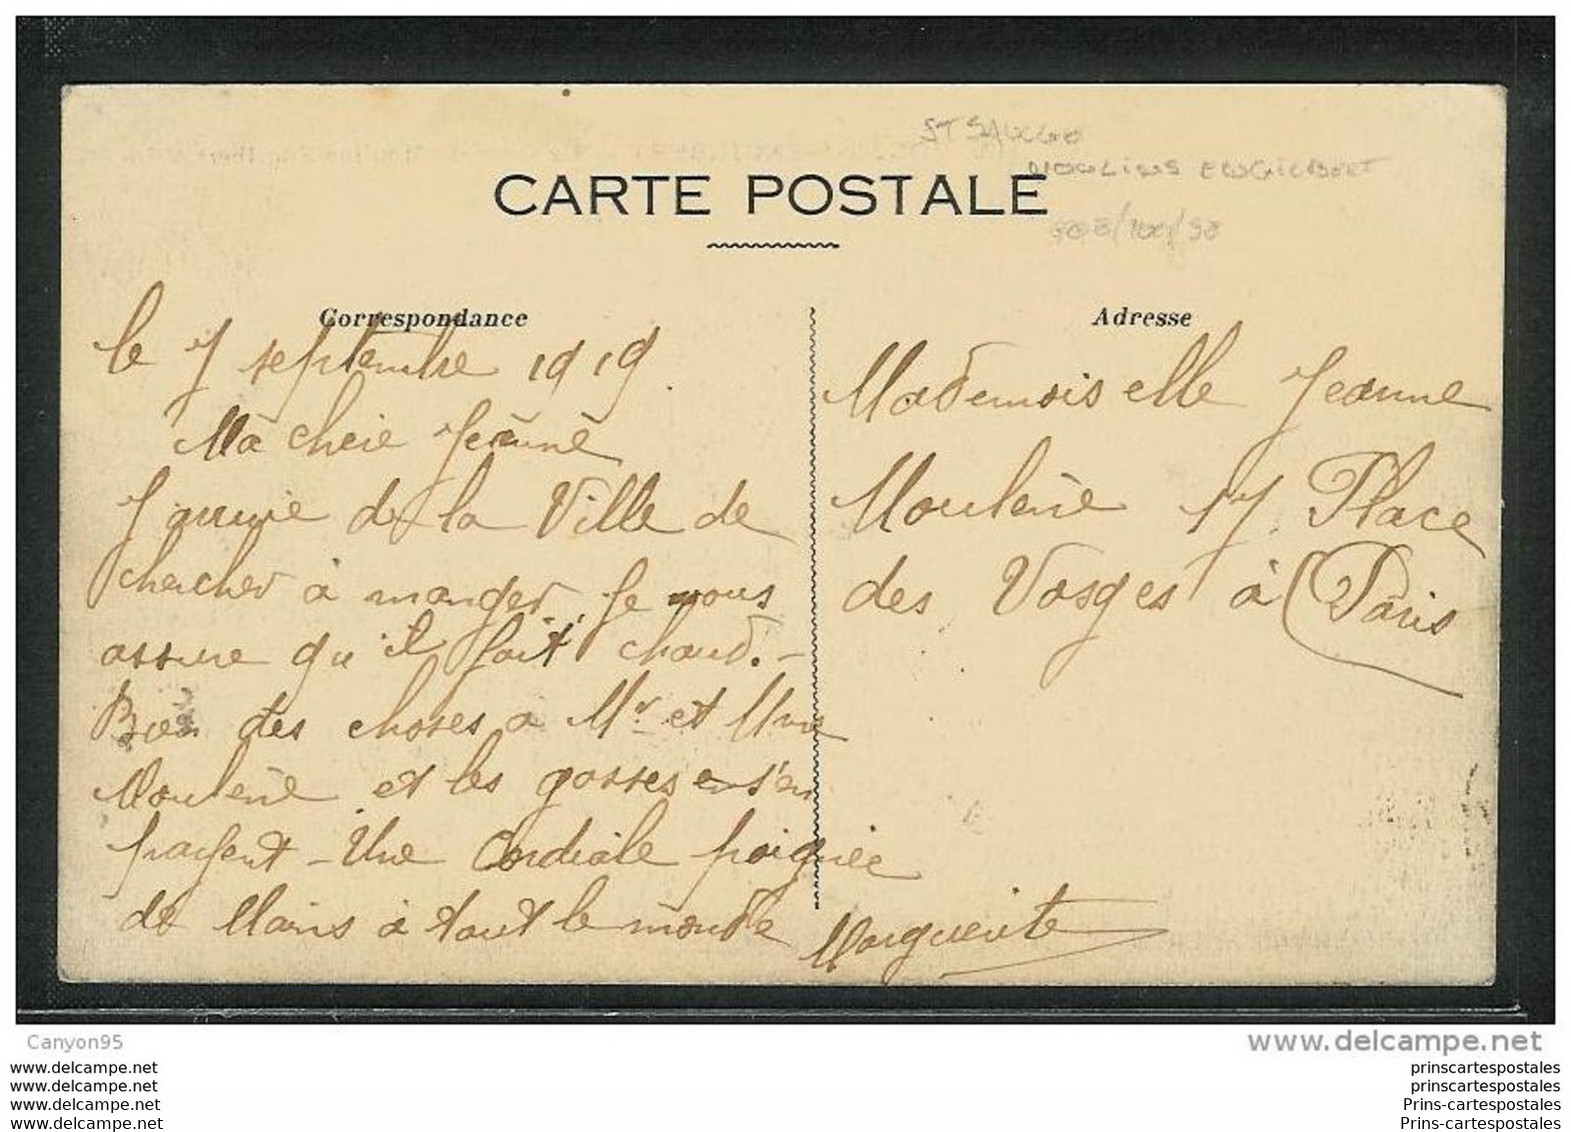 ST SAULGE
MOULINS ENGILBERT
CARTE POSTALE
Correspondance
le 7 septembre 1919.
Ma cheie Jeanne
J'arrive de la Ville de
chercher à manger, je vous
assure qu'il fait chaud. -
Bien des choses à Mr et Mme
Moulerie et les gosses en s'en
Une Cordiale poignée
de Mains à tout le monde
Marguerite
Adresse
Mademoiselle Jeanne
Moulerie 17, Place
des Vosges à Paris
Canyon95
www.delcampe.net
www.delcampe.net
www.delcampe.net
www.delcampe.net
www.delcampe.net
prinscartespostales
prinscartespostales
Prins-cartespostales
Prins-cartespostales